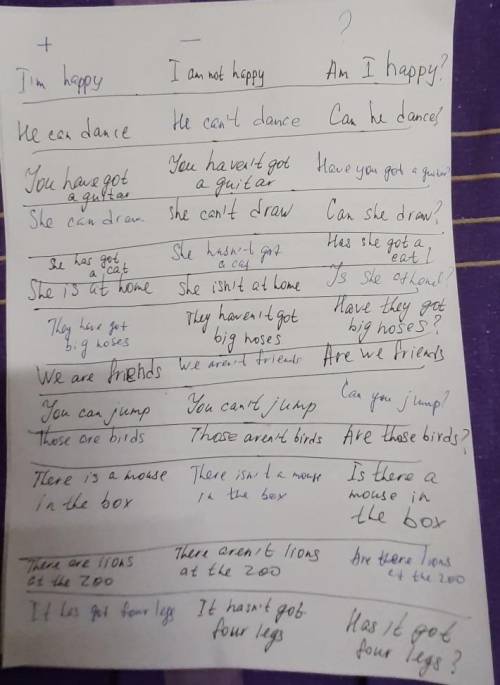 + — ?
I'm happy I am not happy Am I happy?
He can dance He can't dance Can he dance?
You have got You haven't got Have you got a guitar?
a guitar a guitar
She can draw she can't draw Can she draw?
She has got She hasn't got Has she got a
a cat a cat cat?
She is at home she isn't at home Is she at home?
They have got They haven't got Have they got
big noses big noses big noses?
We are friends We aren't friends Are we friends
You can jump You can't jump Can you jump?
Those are birds Those aren't birds Are those birds?
There is a mouse There isn't a mouse Is there a
in the box in the box mouse in
the box
There are lions There aren't lions Are there lions
at the zoo at the zoo at the zoo
It has got four legs It hasn't got Has it got
four legs four legs?